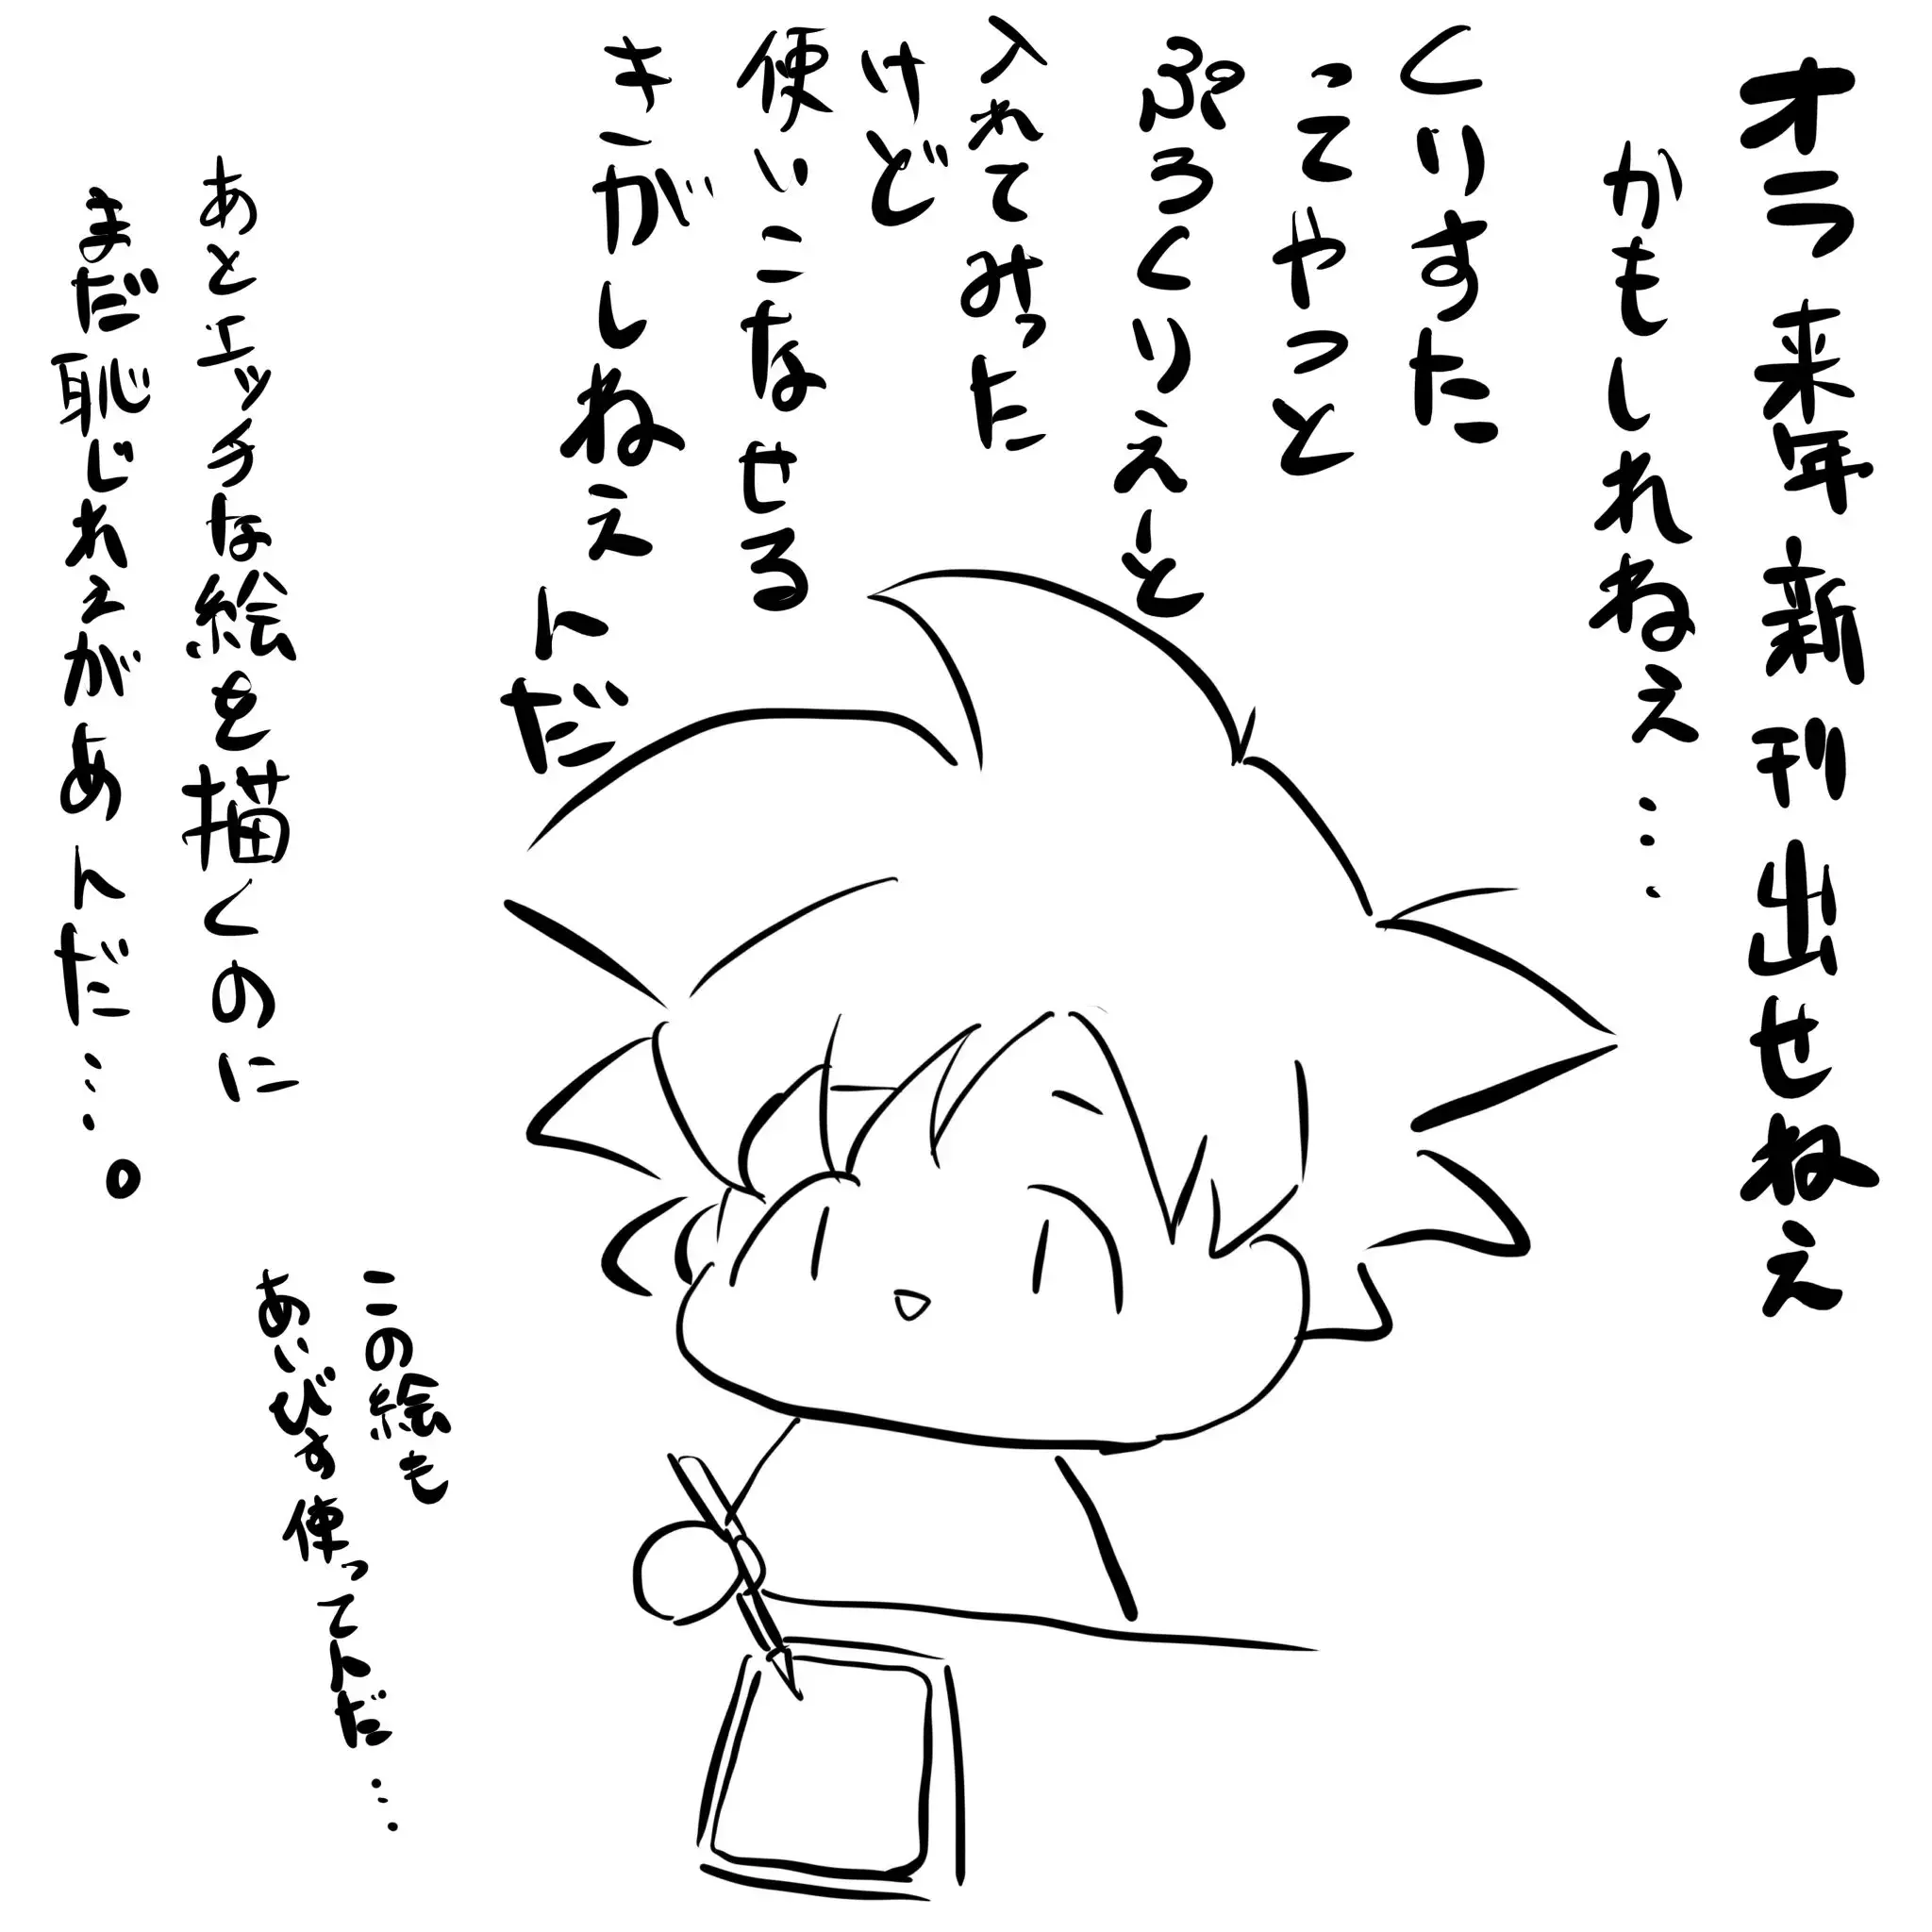 オラ来年新刊出せねえ
かもしれねえ…
くりすた
こてやっと
ぷろくりえいと
入れてみった
けど
使いこなせる
きがしねえ
んだ
あとエッチな絵を描くのに
まだ恥じれえがあんだ…。
この絵も
あいびす使ってんだ…